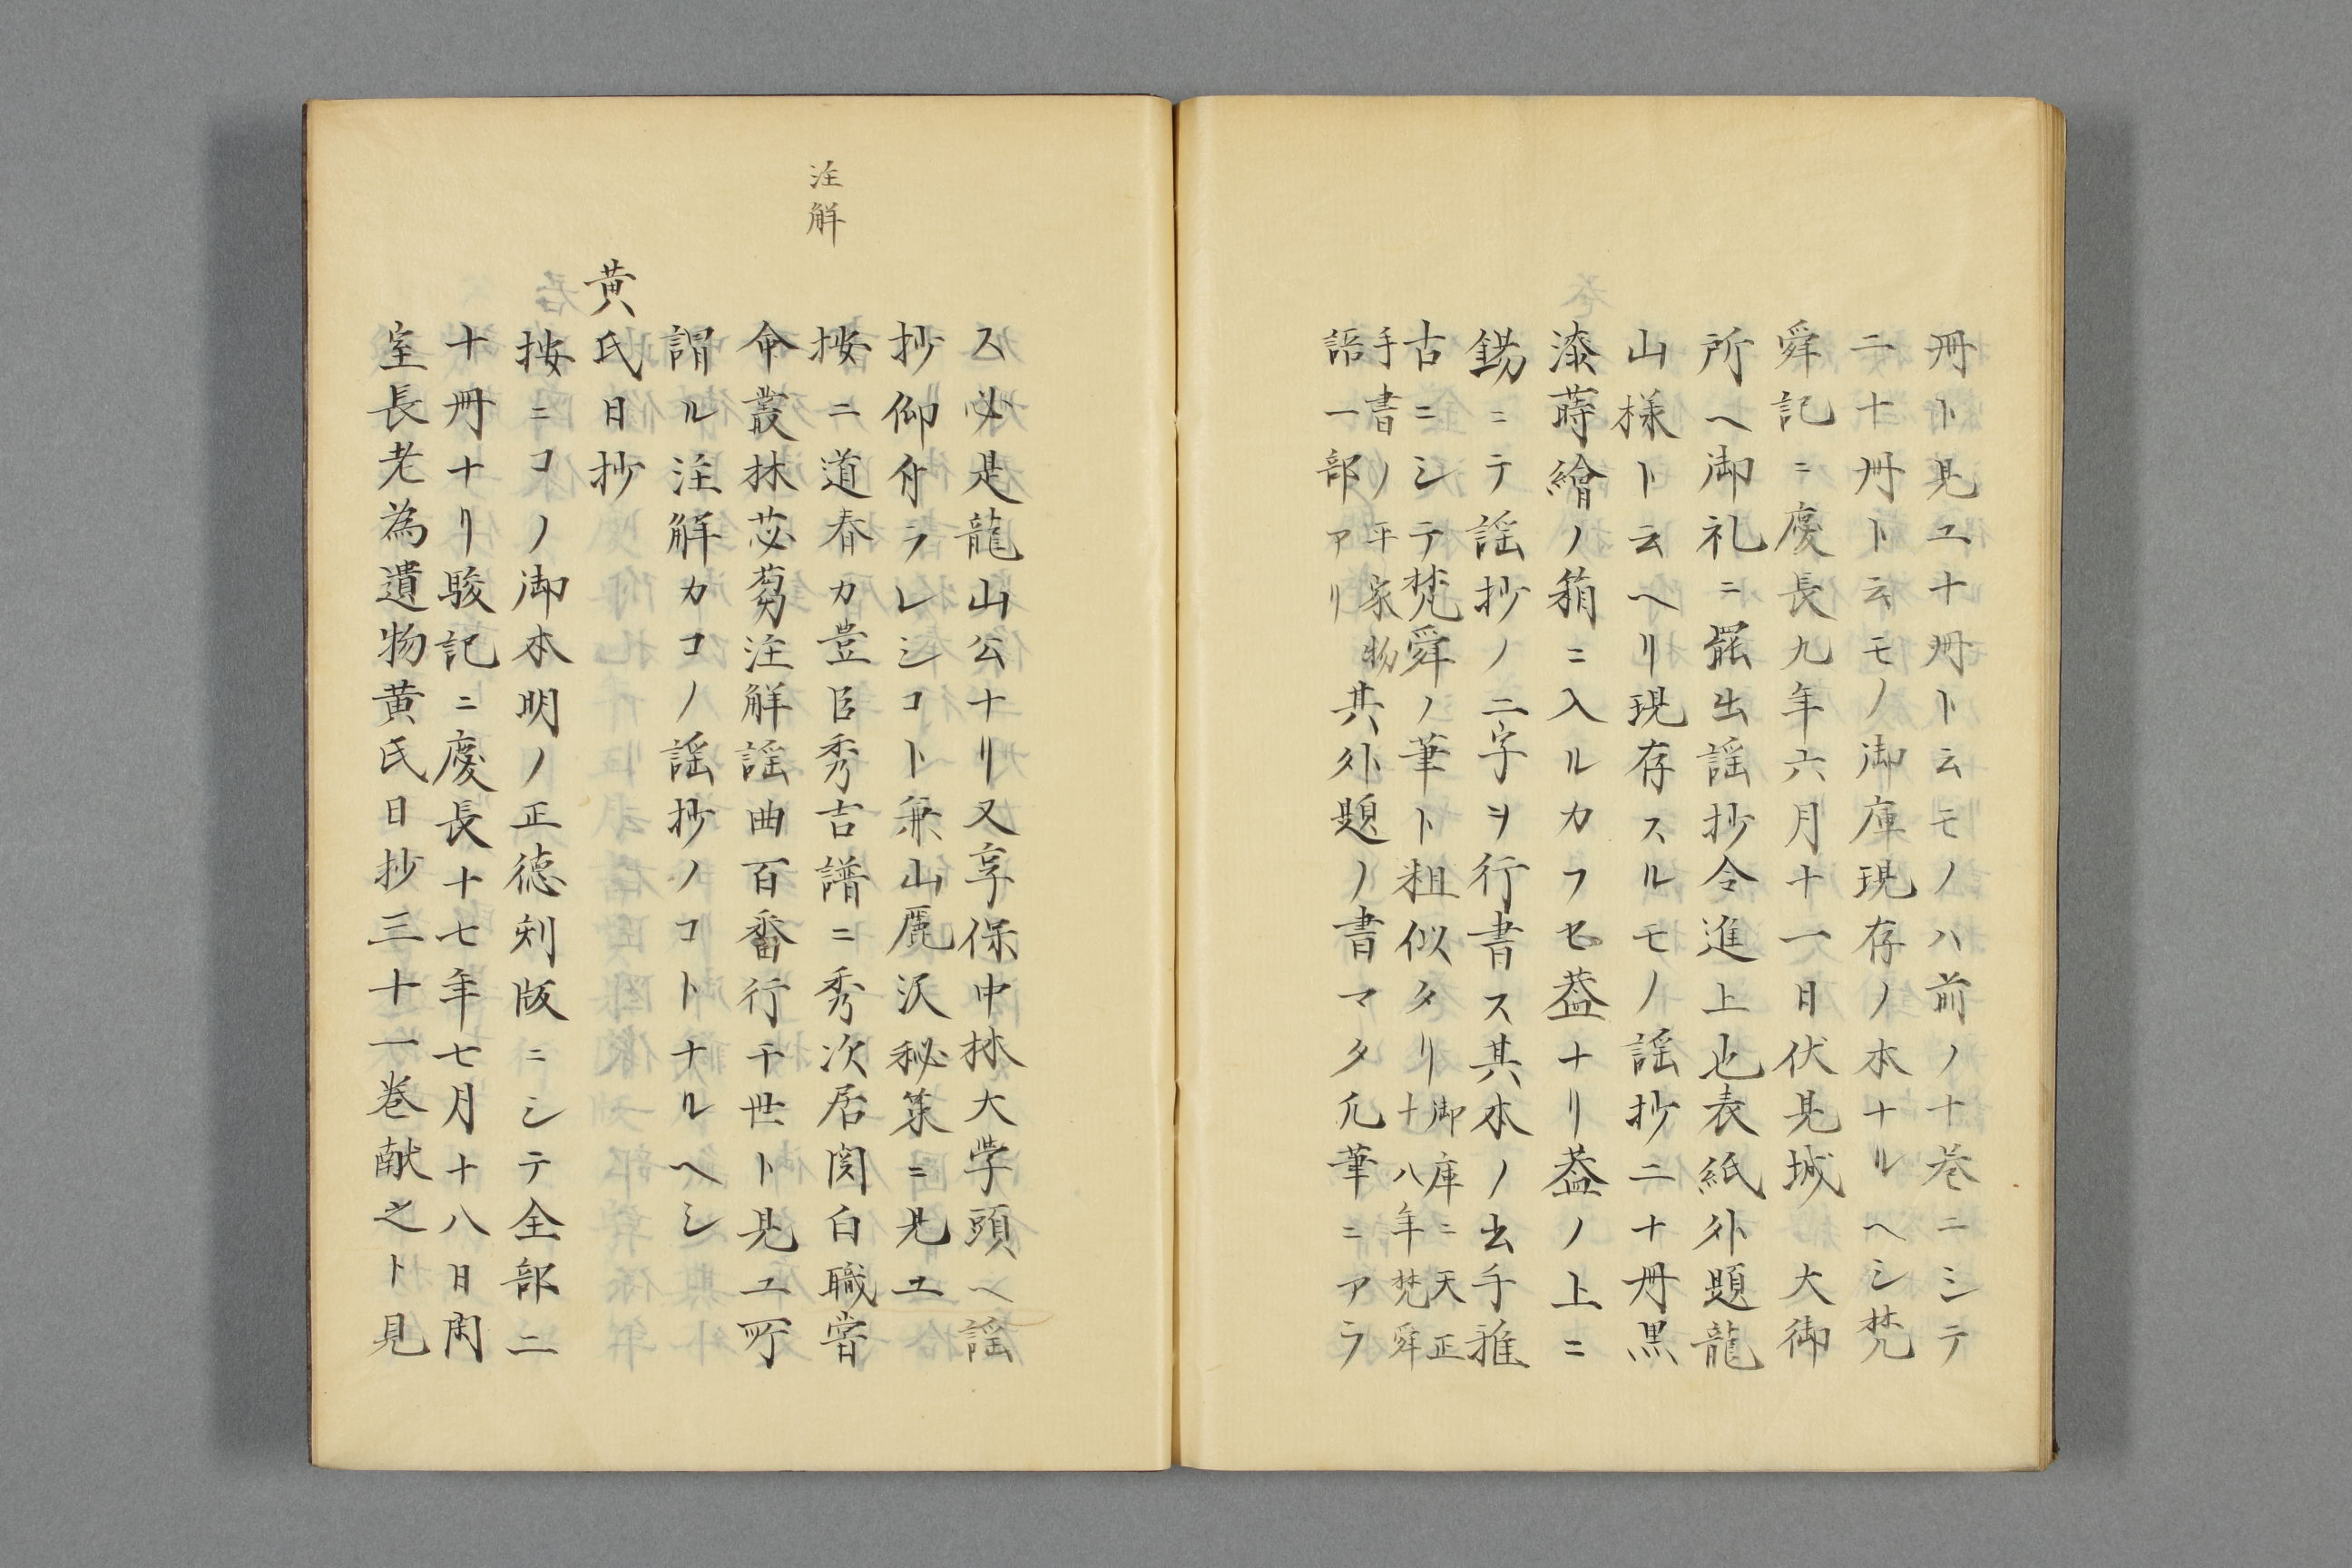 冊ト見ユ十冊ト云モノハ前ノ十巻ニシテ
二十冊ト云モノ御庫現存ノ本ナルヘシ梵
舜記ニ慶長九年六月十一日伏見城　大御
所ヘ御礼ニ罷出謡抄令進上也表紙外題龍
山様ト云ヘリ現存スルモノ謡抄二十冊黒
漆蒔繪ノ箱ニ入ルカフセ葢ナリ葢ノ上ニ
錫ニテ謡抄ノ二字ヲ行書ス其本ノ出手雅
古ニシテ梵舜ノ筆ト粗似タリ御庫ニ天正
十八年梵舜
手書ノ平家物
語一部アリ其外題ノ書マタ凢筆ニアラ
ス必是龍山公ナリ又享保中林大学頭ヘ謡
抄仰付ラレシコト兼山麗沢秘策ニ見ユ
注解
按ニ道春カ豊臣秀吉譜ニ秀次居関白職嘗
命叢林苾蒭注解謡曲百番行于世ト見ユ所
謂ル注解カコノ謡抄ノコトナルヘシ
黄氏日抄
按ニコノ御本明ノ正徳刻版ニシテ全部二
十冊ナリ駿記ニ慶長十七年七月十八日閑
室長老為遺物黄氏日抄三十一巻献之ト見